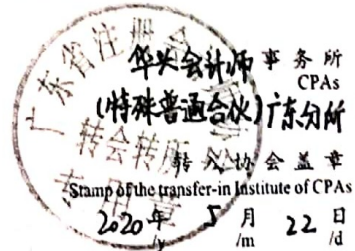 广东省注册会计师协会
转会转所
专用章
华兴会计师事务所
CPAs
(特殊普通合伙)广东分所
转入协会盖章
Stamp of the transfer-in Institute of CPAs
2020年 5月 22日
/y /m /d